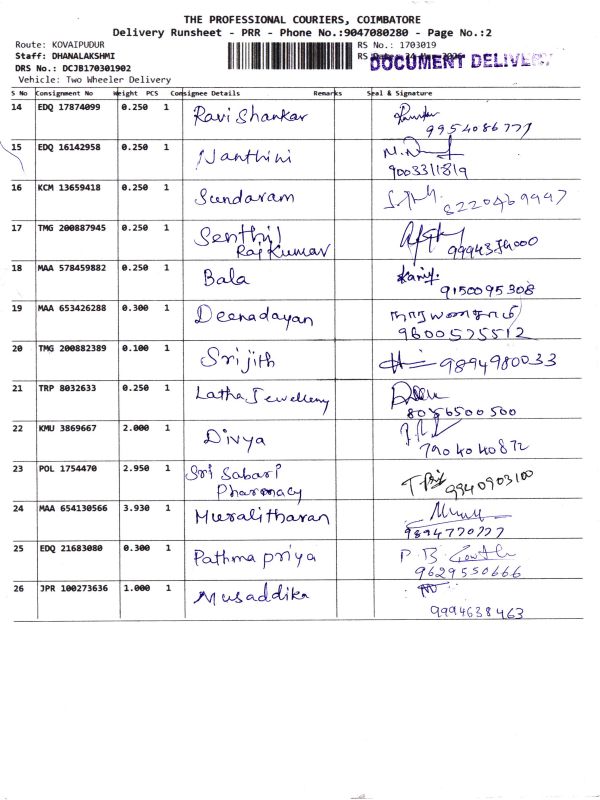 THE PROFESSIONAL COURIERS, COIMBATORE
Delivery Runsheet - PRR - Phone No.:9047080280 - Page No.:2
Route: KOVAIPUDUR
RS No.: 1703019
Staff: DHANALAKSHMI
RS
DOCUMENT DELIVERY
DRS No.: DCJB170301902
Vehicle: Two Wheeler Delivery
S No Consignment No Weight PCS Consignee Details Remarks Seal & Signature
14 EDQ 17874099 0.250 1 Ravi Shankar
9954086777
15 EDQ 16142958 0.250 1 Nanthini
9003311819
16 KCM 13659418 0.250 1 Sundaram
8220469947
17 TMG 200887945 0.250 1 Senthil
Raj Kumar
18 MAA 578459882 0.250 1 Bala
9150095308
19 MAA 653426288 0.300 1 Deenadayan
9600575512
20 TMG 200882389 0.100 1 Srijith 9894980033
21 TRP 8032633 0.250 1 Latha Jewellery
8056500500
22 KMU 3869667 2.000 1 Divya
7904040872
23 POL 1754470 2.950 1 Sri Sabari
Pharmacy 9940903100
24 MAA 654130566 3.930 1 Muralitharan
9894770777
25 EDQ 21683080 0.300 1 Pathma priya P.B.
9629550666
26 JPR 100273636 1.000 1 Musaddika
9994638463